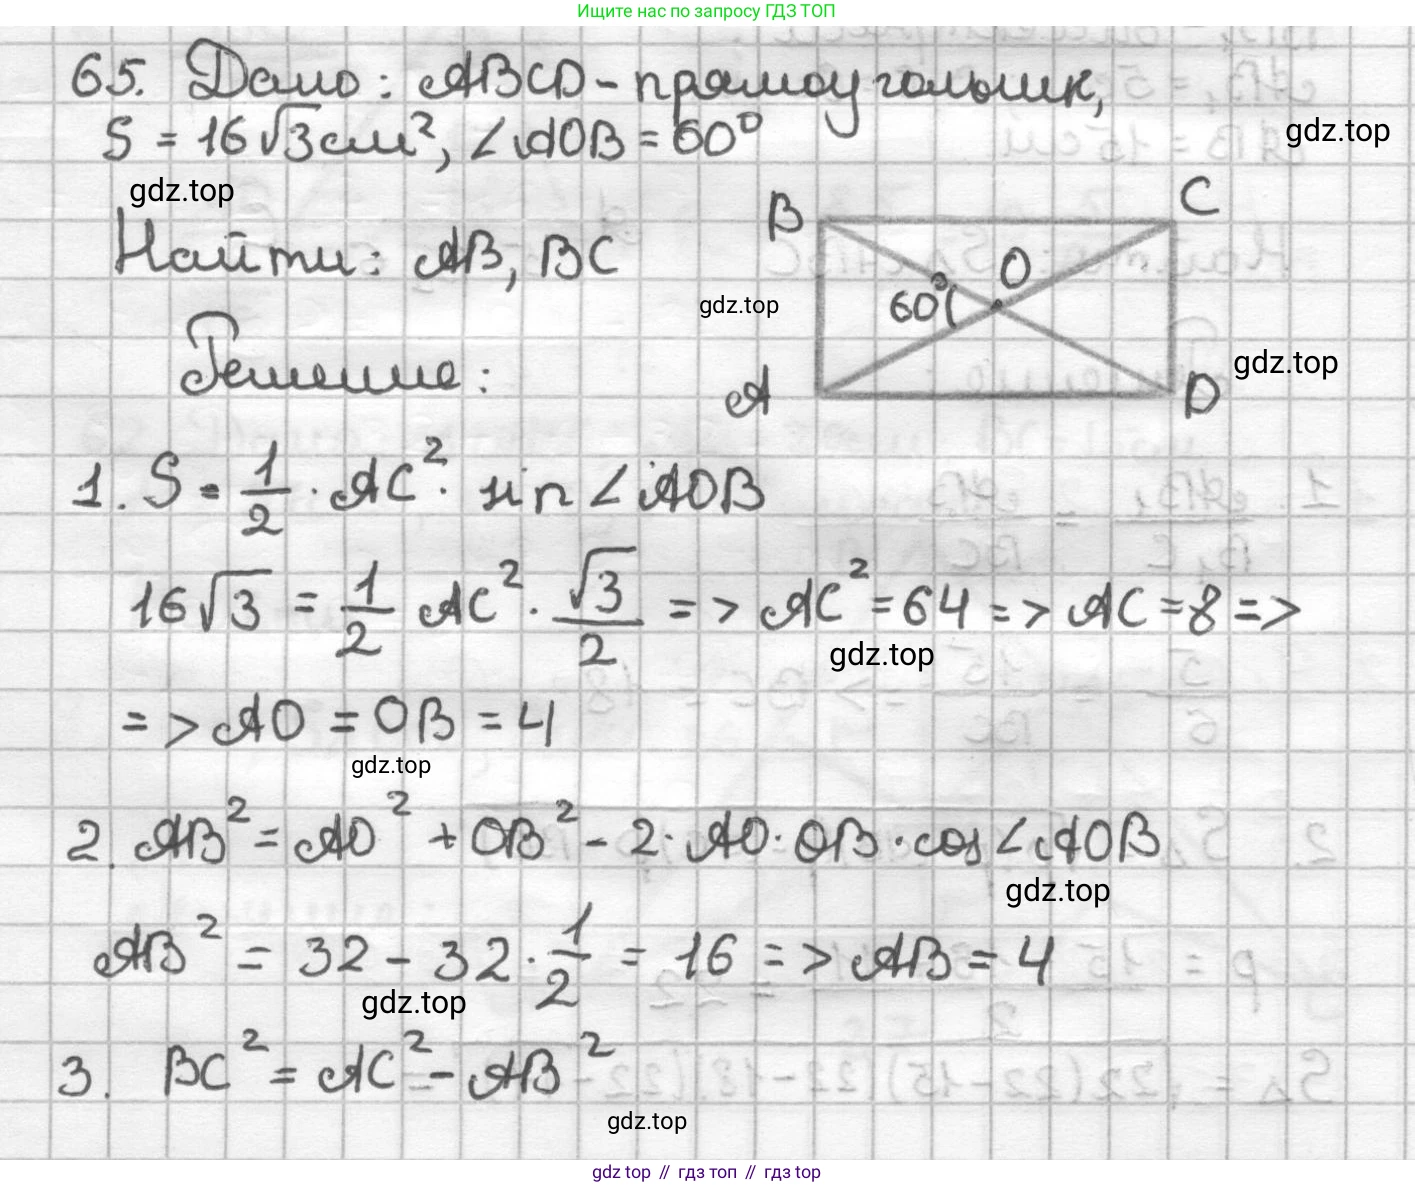 Ищите нас по запросу ГДЗ ТОП
65. Дано: ABCD – прямоугольник,
S = 16√3 см², ∠AOB = 60°
gdz.top
gdz.top
Найти: AB, BC
B
C
O
60°
A
D
gdz.top
gdz.top
Решение:
1. S = 1/2 · AC² · sin ∠AOB
16√3 = 1/2 AC² · √3/2 => AC² = 64 => AC = 8 =>
gdz.top
=> AO = OB = 4
gdz.top
2. AB² = AO² + OB² - 2 · AO · OB · cos ∠AOB
gdz.top
AB² = 32 - 32 · 1/2 = 16 => AB = 4
gdz.top
3. BC² = AC² - AB²
gdz.top
gdz top // гдз топ // gdz top